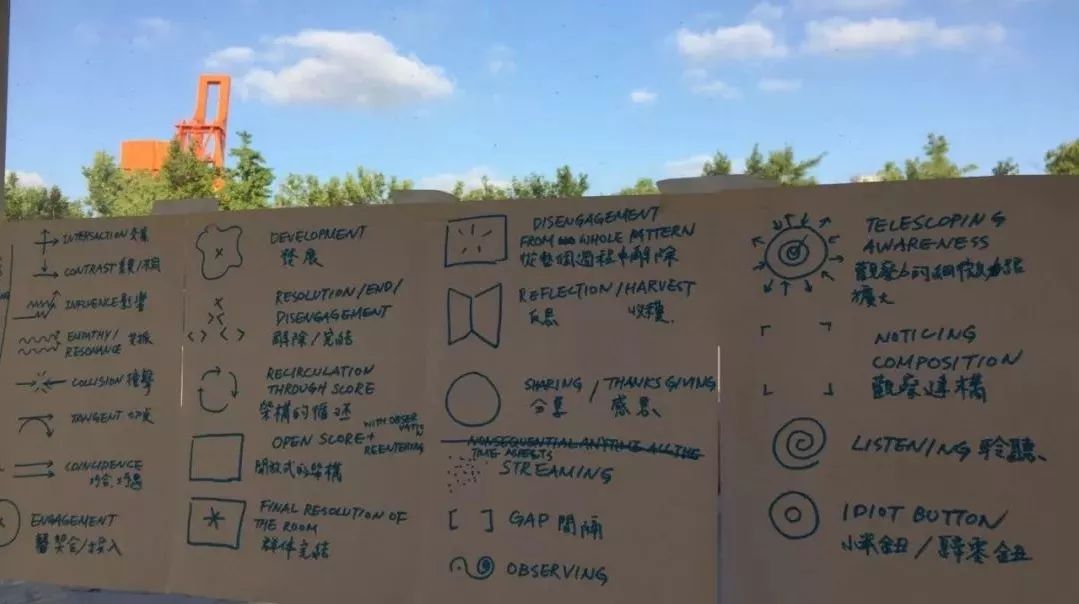 INTERSACTION 交集
CONTRAST
INFLUENCE 影響
EMPATHY/
RESONANCE
COLLISION 撞擊
TANGENT 切
COINCIDENCE
巧合
ENGAGEMENT
契合/投入
DEVELOPMENT
發展
RESOLUTION/END/
DISENGAGEMENT
解除/完結
RECIRCULATION
THROUGH SCORE
架構的循環
OPEN SCORE + WITH OBSERVATION
REENTERING
開放式的架構
FINAL RESOLUTION OF
THE ROOM
群体完結
DISENGAGEMENT
FROM WHOLE PATTERN
從整個過程中解除
REFLECTION/HARVEST
反思 收穫
SHARING / THANKS GIVING
分享 感恩
NONSEQUENTIAL ANYTIME ALL THE
TIME ASPECTS
STREAMING
[ ] GAP 間隔
OBSERVING
TELESCOPING
AWARENESS
觀察力的
擴大
NOTICING
COMPOSITION
觀察建構
LISTENING 聆聽
IDIOT BUTTON
小米鈕/歸零鈕